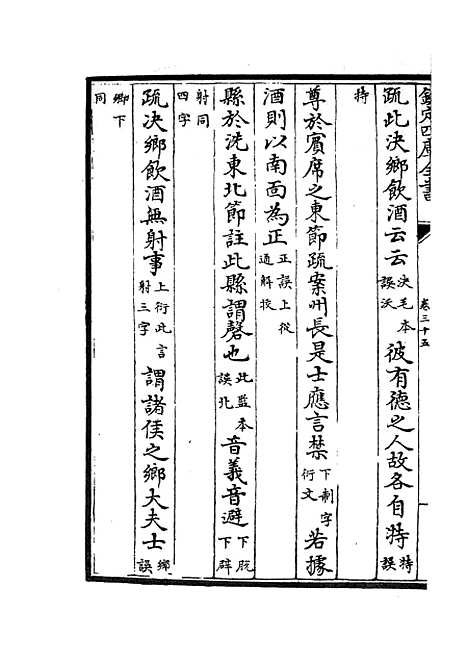 欽定四庫全書
卷三十五
疏此決鄉飲酒云云決毛本誤沃彼有德之人故各自特特誤
持
尊於賓席之東節疏案州長是士應言禁下制字衍文若據
酒則以南面為正正誤上從通解挍
縣於洗東北節註此縣謂磬也此監本誤北音義音避下脫下辟
射同四字
疏決鄉飲酒無射事上衍此言射三字謂諸侯之鄉大夫士鄉誤
鄉下同